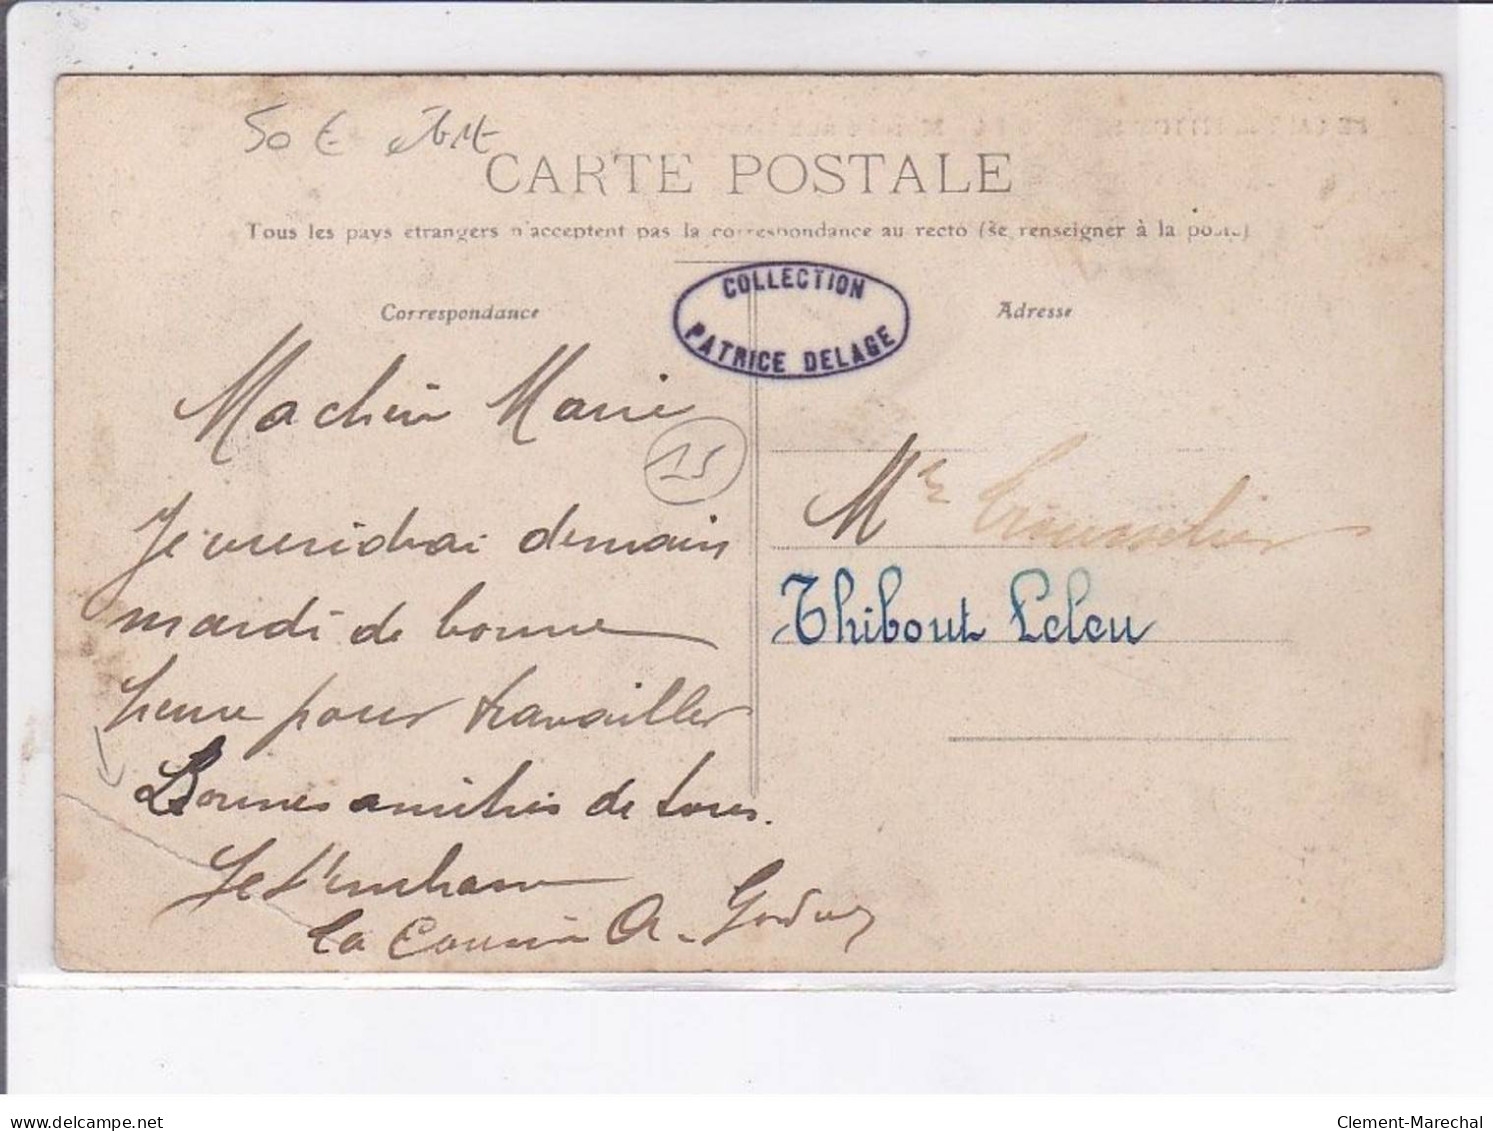 50 €
CARTE POSTALE
Tous les pays etrangers n'acceptent pas la correspondance au recto (se renseigner à la poste)
COLLECTION
PATRICE DELAGE
Correspondance
Adresse
Ma chère Marie
15
Je viendrai demain
mardi de bonne
heure pour travailler
Bonnes amitiés de tous.
Je t'embrasse
ta Cousine A.
Mr
Thibout Leleu
delcampe.net
Clement-Marechal